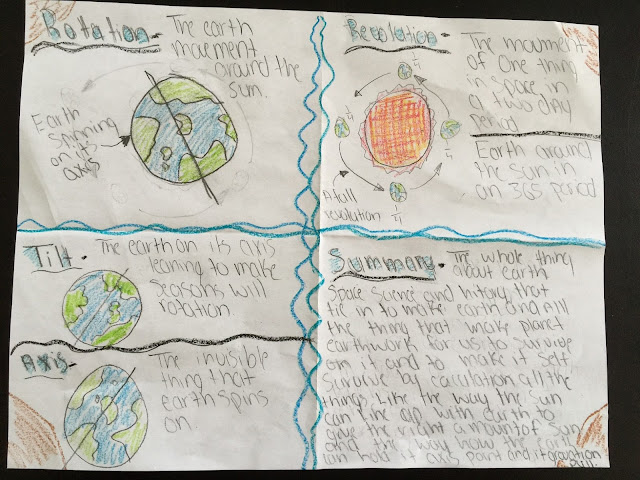 Rotation- The earth
movement
around the
sun.
Earth
spinning
on its
axis
Revolution- The movment
of one thing
in space in
a two day
period
Earth around
the sun in
an 365 period
1/4
1/4
1/4
1/4
A full
revolution
Tilt- The earth on its axis
leaning to make
seasons will
rotation.
Axis- The invisible
thing that
earth spins
on.
Summary- The whole thing
about earth
space science and hitary that
tie in to make earth and All
the thing that make planet
earth work for us to survive
on it and to make it self
survive by caculation all the
things. Like the way the sun
can line up with earth to
give the right amount of sun
and the way how the earth
can hold it axis point and it
pull.